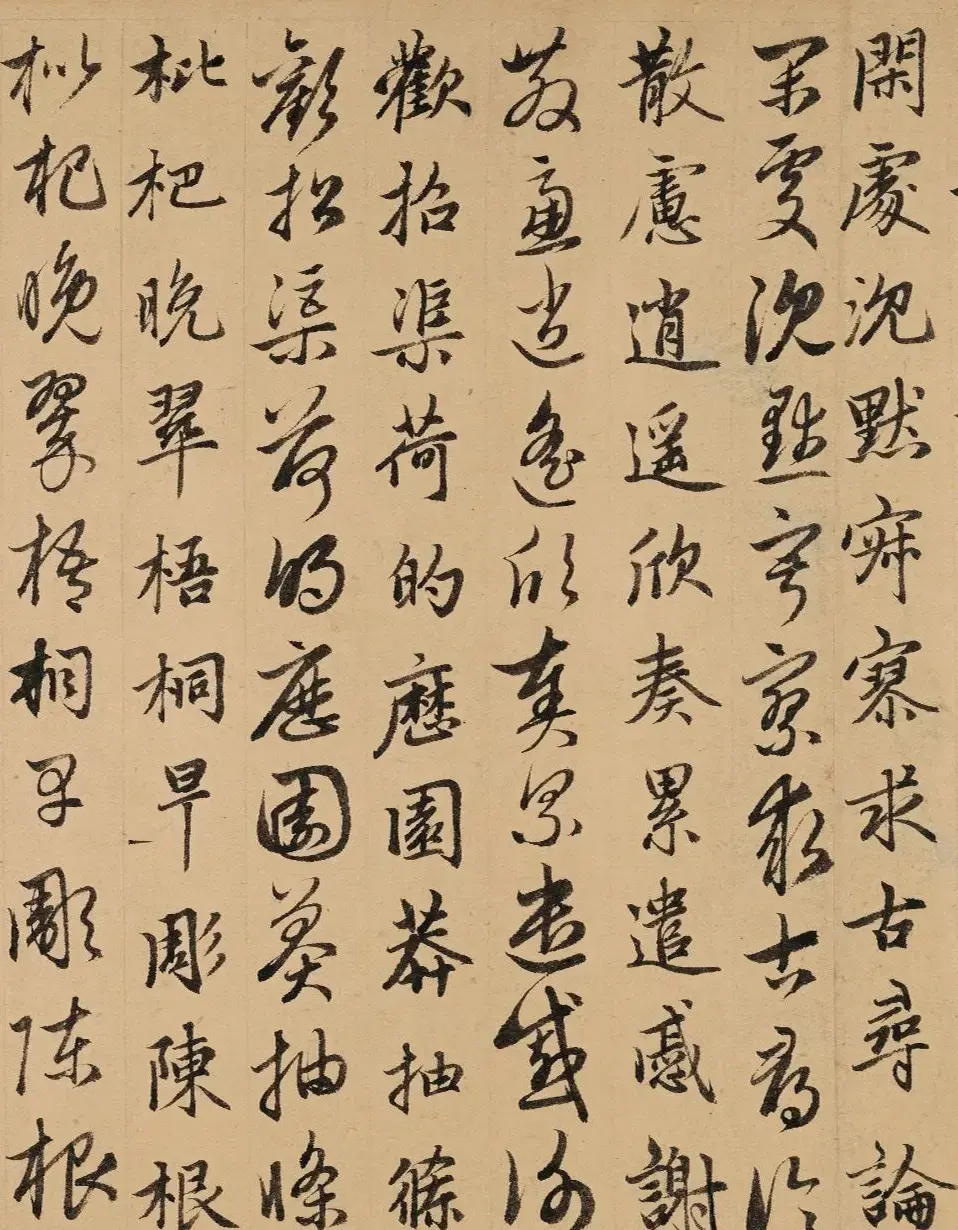 閑處沉默寂寥求古尋論
閑處沉默寂寥求古尋論
散慮逍遥欣奏累遣慼謝
散慮逍遥欣奏累遣慼謝
歡招渠荷的歷園莽抽條
歡招渠荷的歷園莽抽條
枇杷晚翠梧桐早彫陳根
枇杷晚翠梧桐早彫陳根